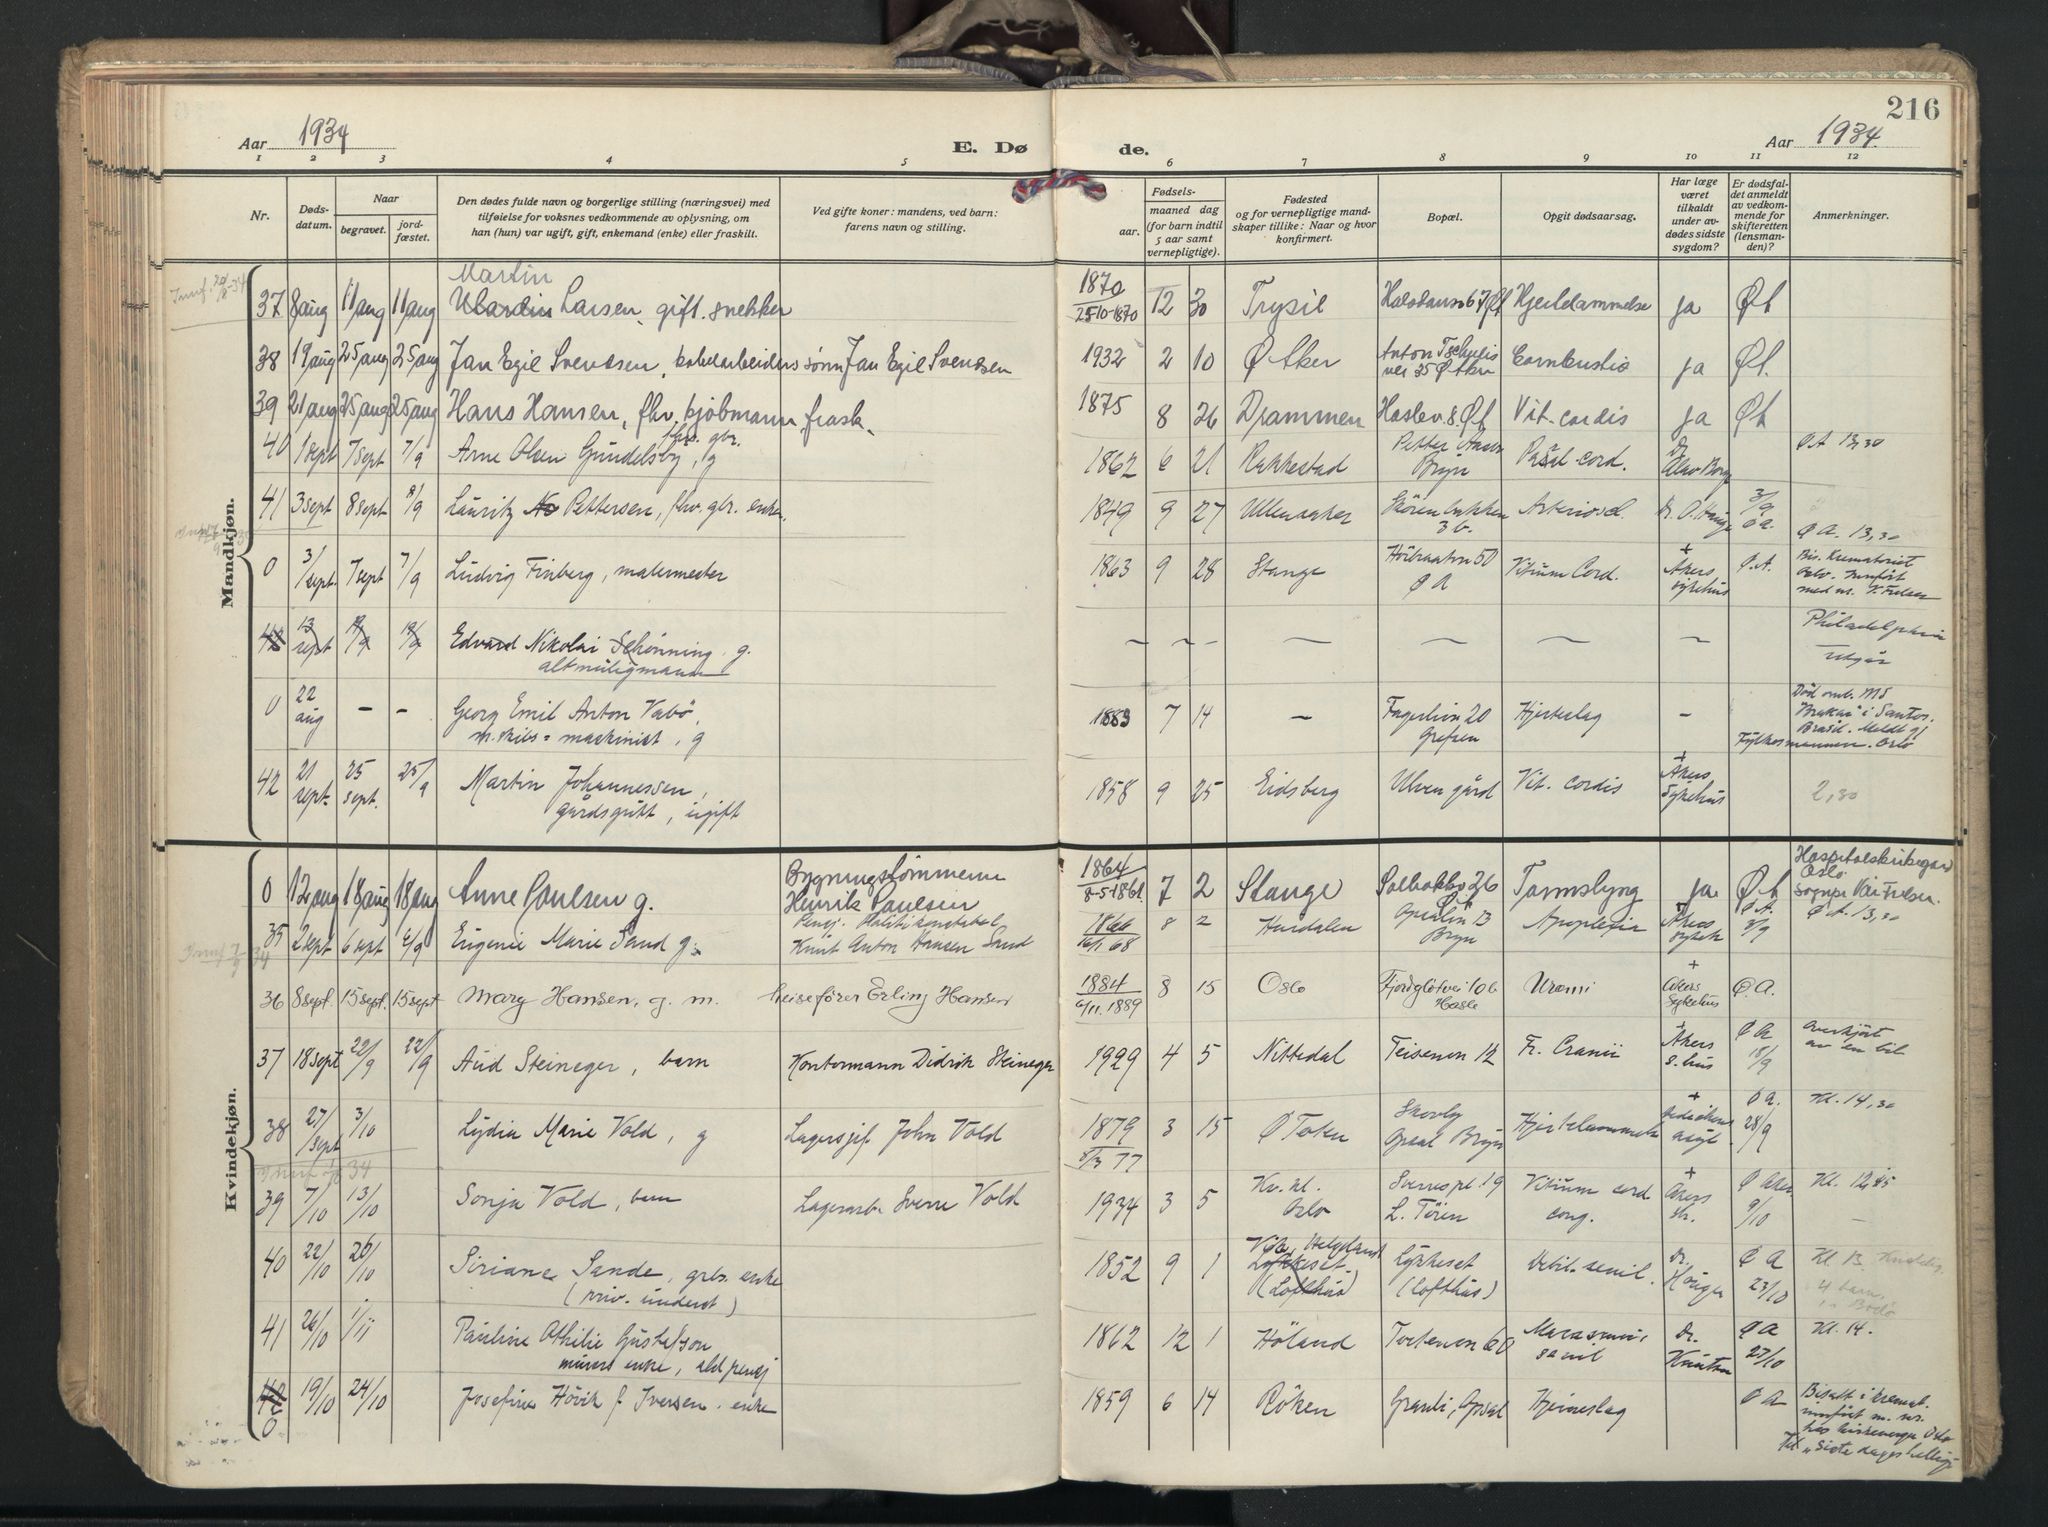 216
Aar 1934
E. Dø
de.
Aar 1934.
1 2 3 4 5 6 7 8 9 10 11 12
Nr.
Døds-
datum.
Naar
begravet.
jord-
fæstet.
Den dødes fulde navn og borgerlige stilling (næringsvei) med
tilføielse for voksnes vedkommende av oplysning, om
han (hun) var ugift, gift, enkemand (enke) eller fraskilt.
Ved gifte koner: mandens, ved barn:
farens navn og stilling.
Fødsels-
aar.
maaned dag
(for barn indtil
5 aar samt
vernepligtige).
Fødested
og for vernepligtige mand-
skaper tillike: Naar og hvor
konfirmert.
Bopæl.
Opgit dødsaarsag.
Har læge
været
tilkaldt
under av-
dødes sidste
sygdom?
Er dødsfal-
det anmeldt
av vedkom-
mende for
skifteretten
(lensman-
den)?
Anmerkninger.
Mandkjøn.
Martin
37 8 aug 11 aug 11 aug Larsen, gift. snekker 1870 12 30 Trysil Hjertelammelse ja Øst
25/10-1870
38 19 aug 25 aug 25 aug Jan Egil Svendsen, sønn Jan Egil Svendsen 1932 2 10 Ø Aker Anton Tschudis
vei 35 Ø Aker Combustio ja Øst.
39 21 aug 25 aug 25 aug Hans Hansen, fhv. kjøbmann, frask. 1875 8 26 Drammen Haslev. 8. Øst Vit. cordis ja Øst
40 1 sept 7 sept 7/9 Arne Olsen Gundelsby, fhv. gbr. g 1862 6 21 Rakkestad Bryn cord. Dr Ø A 13,30
41 3 sept 8 sept 8/9 Lauritz Pettersen, fhv. gbr. enkem. 1849 9 27 Ullensaker 3 b. Arterioscl. Dr. 3/9 Ø A. Ø A. 13,30
0 3/sept. 7 sept 7/9 Ludvig Finberg, malermester 1863 9 28 Stange 50
Ø A Vitium Cord. + Akers
sykehus Ø. A. Bis. Krematoriet
Oslo. Innført
med nr. V. Frelser
42 13 sept 19/9 19/9 Edvard Nikolai Schønning. g.
altmuligmann – – – – – – – Philadelphia
Utgår
0 22 aug – – Georg Emil Anton Vabø,
maskinist, g 1883 7 14 – Fagerlien 20
Grefsen Hjerteslag – Død omb. MS
i Santos,
Brasil. Meldt gj
Fylkesmannen. Oslo
42 21 sept. 25 sept. 25/9 Martin Johannessen,
gårdsgutt, ugift 1858 9 25 Eidsberg Ulven gård Vit. cordis + Akers
Sykehus 2,30
Kvindekjøn.
0 12 aug 18 aug 18 aug Anne Paulsen g. Bygningstømmerm
Henrik Paulsen 1864 7 2 Stange Solbakken 26 Tarmslyng ja Øst Hospitalskirkegård
Oslo
8-5-1861
35 2 sept 6 sept 6/9 Eugenie Marie Sand g. Pensj. Politikonstabel
Knut Anton Hansen Sand 1866 8 2 Hurdalen 13
Bryn Apoplexia Akers
sykeh Ø A. 3/9 Ø A. 13,30
36 8 sept. 15 sept. 15 sept Mary Hansen, g. m. heisefører Erling Hansen 1884 8 15 Oslo Fjordgløtvei 10 b
Hasle Uremi + Akers
Sykehus Ø. A.
6/11. 1889
37 18 sept 22/9 22/9 Aud Steineger, barn Kontormann Didrik Steineger 1929 4 5 Nittedal Teisenvn 12 Fr. Cranii + Akers
s. hus Ø A 18/9 Overkjørt
av en bil
38 27/sept 3/10 Lydia Marie Vold, g Lagersjef John Vold 1879 3 15 Ø Skovly
Opsal Bryn Hjertelammelse + Ø A. 28/9 Kl. 14,30
39 7/10 13/10 Sonja Vold, barn Lagerarb. Sverre Vold 1934 3 5 Kv. kl.
Oslo 19
L. Tøien Vitium cord
cong. + Akers Ø Aker 9/10 Kl. 12,45
40 22/10 26/10 Siriane Sande, grbr. enke
(priv. underst) 1852 9 1 Helgeland
(Lofthus) Lykkeset
(Lofthus) Debil. senil. dr. Ø A 23/10 Kl 13
4 barn
i Bodø
41 26/10 1/11 Pauline Othilie Gustafson
murers enke, 1862 12 1 Høland 60 Marasmus
senil dr.
Knutsen Ø A 27/10 Kl. 14.
42
0 19/10 24/10 Josefine Høvik f Iversen. enke 1859 6 14 Røken Granli, Opsal Hjerneslag Ø A Bisatt i kremat.
innført m. nr.
hos kirkeverge Oslo
Til "Siste dages hellige